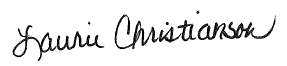 Laurie Christianson